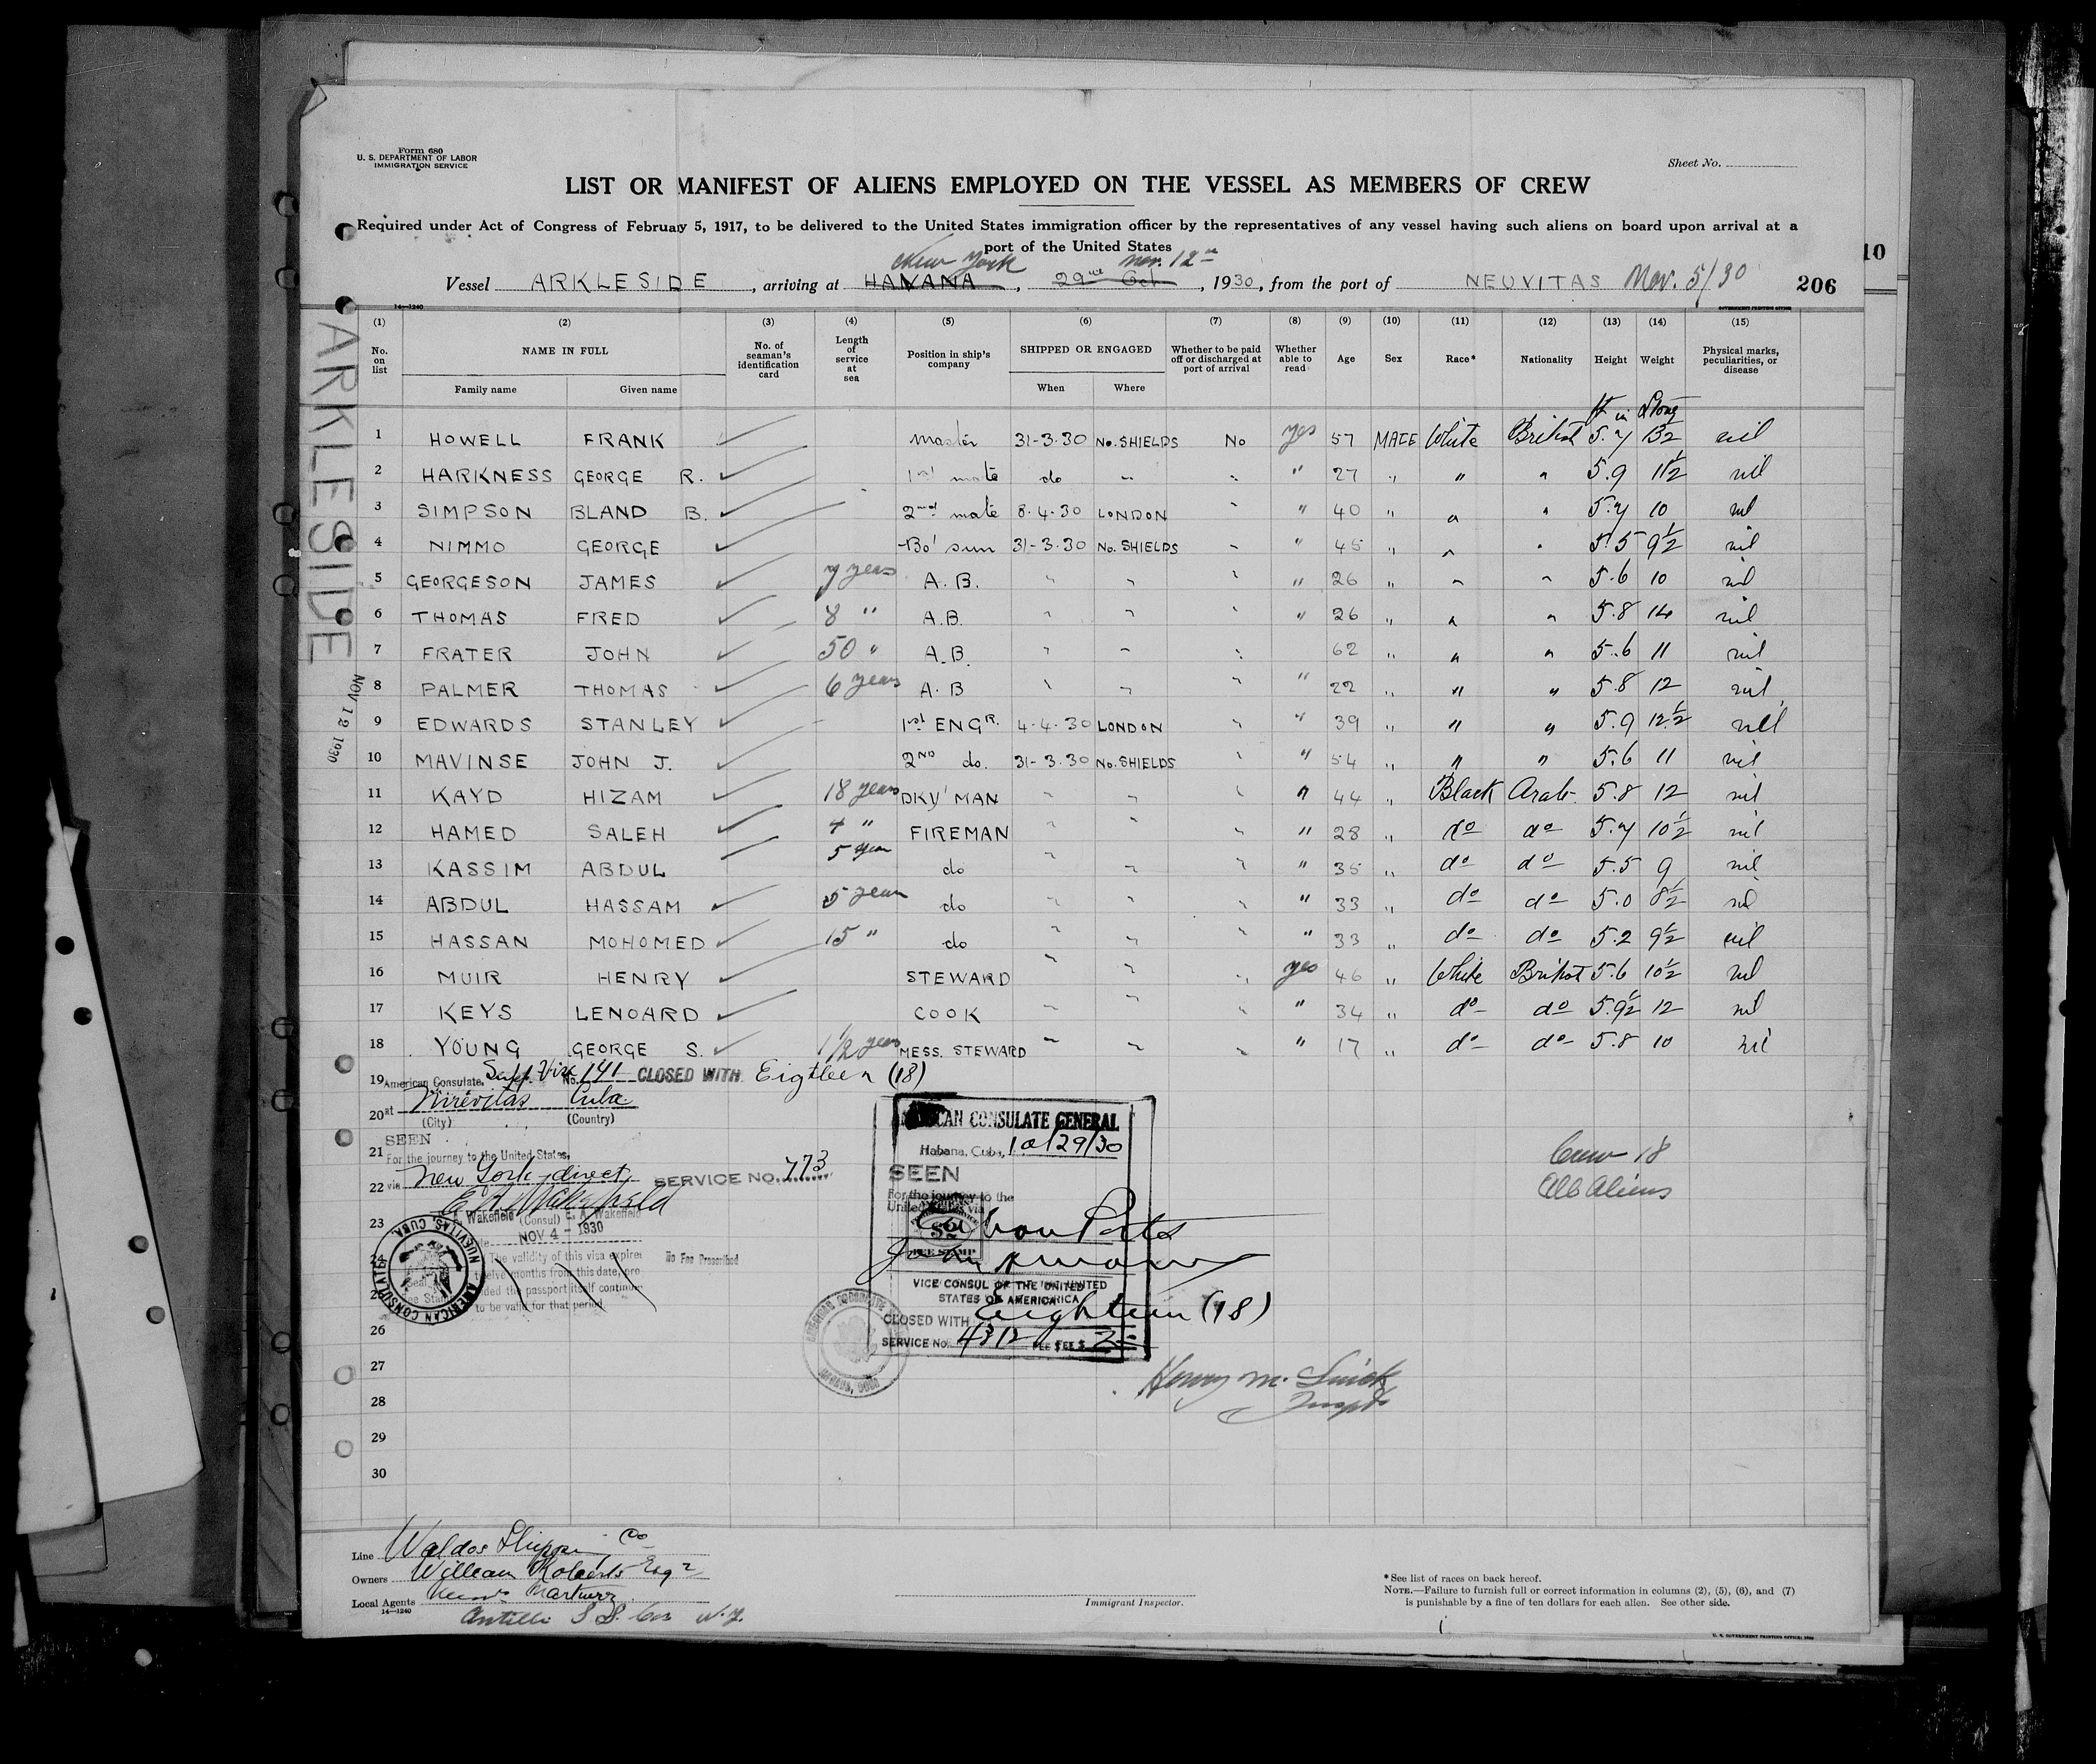 Form 680
U. S. DEPARTMENT OF LABOR
IMMIGRATION SERVICE
Sheet No.
LIST OR MANIFEST OF ALIENS EMPLOYED ON THE VESSEL AS MEMBERS OF CREW
Required under Act of Congress of February 5, 1917, to be delivered to the United States immigration officer by the representatives of any vessel having such aliens on board upon arrival at a
port of the United States
10
New York Nov. 12
Vessel ARKLESIDE, arriving at HAVANA, 29 Oct, 1930, from the port of NEUVITAS Nov. 5/30 206
14—1240
GOVERNMENT PRINTING OFFICE
ARKLESIDE
NOV 12 1930
(1) (2) (3) (4) (5) (6) (7) (8) (9) (10) (11) (12) (13) (14) (15)
No. on list NAME IN FULL No. of seaman's identification card Length of service at sea Position in ship's company SHIPPED OR ENGAGED Whether to be paid off or discharged at port of arrival Whether able to read Age Sex Race* Nationality Height Weight Physical marks, peculiarities, or disease
Family name Given name When Where
ft in Stone
1 HOWELL FRANK master 31-3-30 No. SHIELDS No yes 57 MALE White British 5.7 13½ nil
2 HARKNESS GEORGE R. 1st mate do " " " 27 " " " 5.9 11½ nil
3 SIMPSON BLAND B. 2nd mate 8.4.30 LONDON " " 40 " " " 5.7 10 nil
4 NIMMO GEORGE Bo'sun 31-3-30 No. SHIELDS " " 45 " " " 5.5 9½ nil
5 GEORGESON JAMES 7 years A.B. " " " " 26 " " " 5.6 10 nil
6 THOMAS FRED 8 " A.B. " " " " 26 " " " 5.8 14 nil
7 FRATER JOHN 50 " A.B. " " " 62 " " " 5.6 11 nil
8 PALMER THOMAS 6 years A.B " " " " 22 " " " 5.8 12 nil
9 EDWARDS STANLEY 1st ENGR. 4-4-30 LONDON " " 39 " " " 5.9 12½ nil
10 MAVINSE JOHN J. 2ND do. 31-3-30 No. SHIELDS " " 54 " " " 5.6 11 nil
11 KAYD HIZAM 18 years DKY'MAN " " " " 44 " Black Arab. 5.8 12 nil
12 HAMED SALEH 4 " FIREMAN " " " " 28 " do do 5.7 10½ nil
13 KASSIM ABDUL 5 year do " " " " 35 " do do 5.5 9 nil
14 ABDUL HASSAM 5 years do " " " " 33 " do do 5.0 8½ nil
15 HASSAN MOHOMED 15 " do " " " " 33 " do do 5.2 9½ nil
16 MUIR HENRY STEWARD " " " yes 46 " White British 5.6 10½ nil
17 KEYS LENOARD COOK " " " " 34 " do do 5.9½ 12 nil
18 YOUNG GEORGE S. 1½ years MESS. STEWARD " " " " 17 " do do 5.8 10 nil
19 American Consulate, Supp. Visa No. 141 CLOSED WITH Eigtheen (18)
20 at Nuevitas Cuba
(City) (Country)
SEEN
21 For the journey to the United States,
22 via New York direct SERVICE NO. 773
E. A. Wakefield
23 Wakefield (Consul) E. A. Wakefield
NOV 4 - 1930
24 The validity of this visa expires
twelve months from this date, pro-
25 ded the passport itself continues
to be valid for that period
No Fee Prescribed
AMERICAN CONSULATE NUEVITAS, CUBA.
26
27
28
29
30
AMERICAN CONSULATE GENERAL
Habana, Cuba, 10/29/30
SEEN
For the journey to the
United States via
$2
FEE STAMP
VICE CONSUL OF THE UNITED
STATES OF AMERICA
CLOSED WITH Eighteen (18)
SERVICE No. 4312 FEE $ 2
Crew 18
All Aliens
Henry M.
Inspt
Line Waldos Shipping Co
Owners William Roberts Esq
Local Agents Martinez
14—1240
Antilles S.S. Co N.Y.
Immigrant Inspector.
*See list of races on back hereof.
NOTE.—Failure to furnish full or correct information in columns (2), (5), (6), and (7)
is punishable by a fine of ten dollars for each alien. See other side.